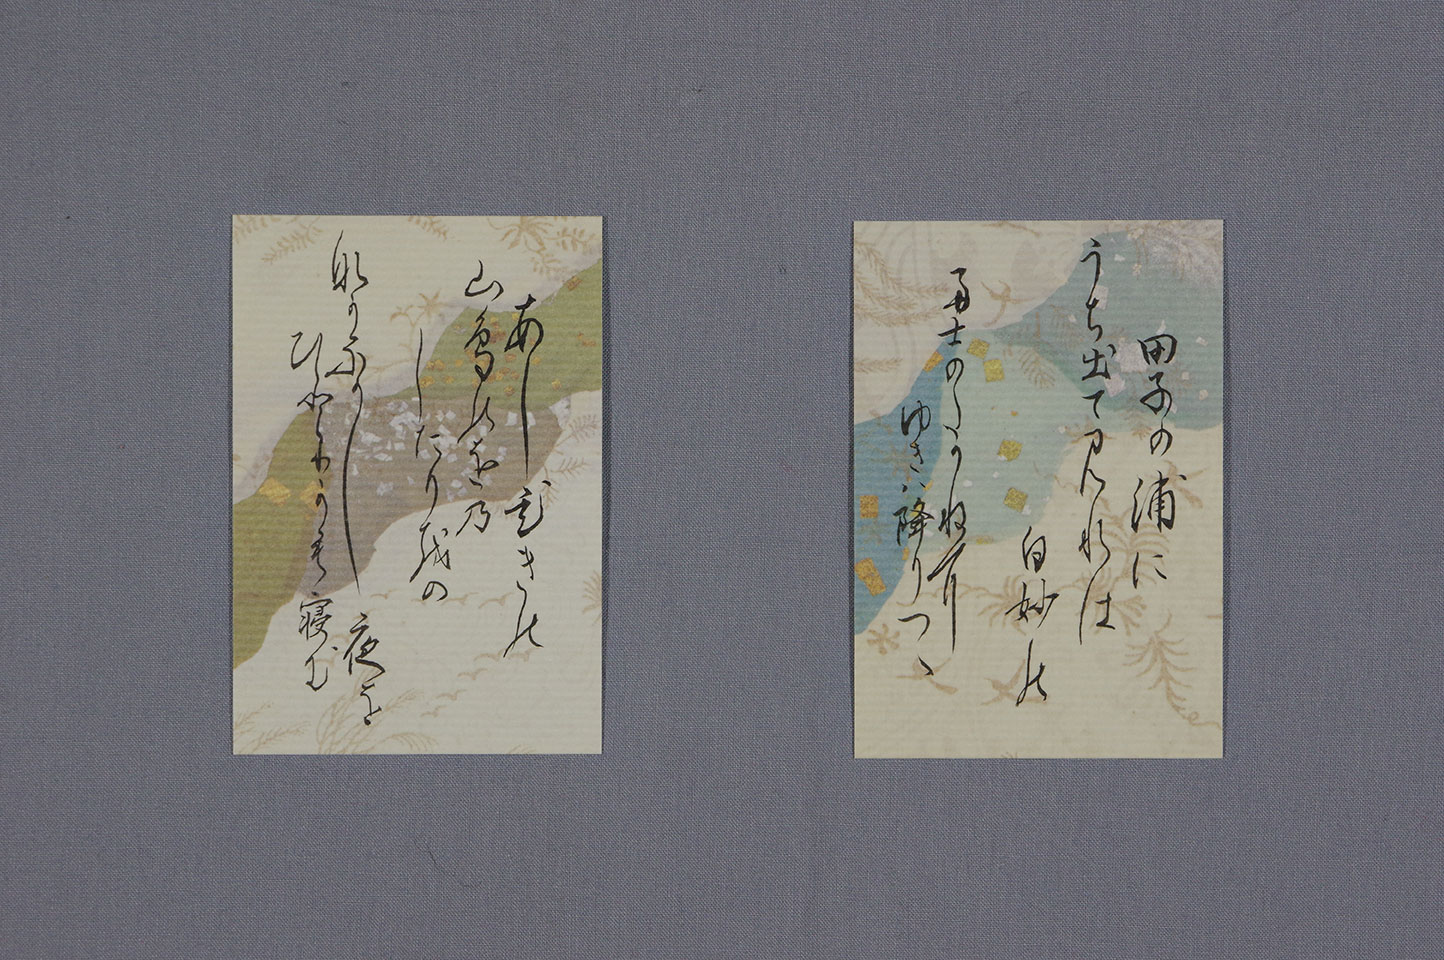 田子の浦に
うち出て見れは
白妙の
富士のたかねに
ゆきは降りつゝ
あしびきの
山鳥の尾の
したり尾の
ながながし夜を
ひとりかも寝む